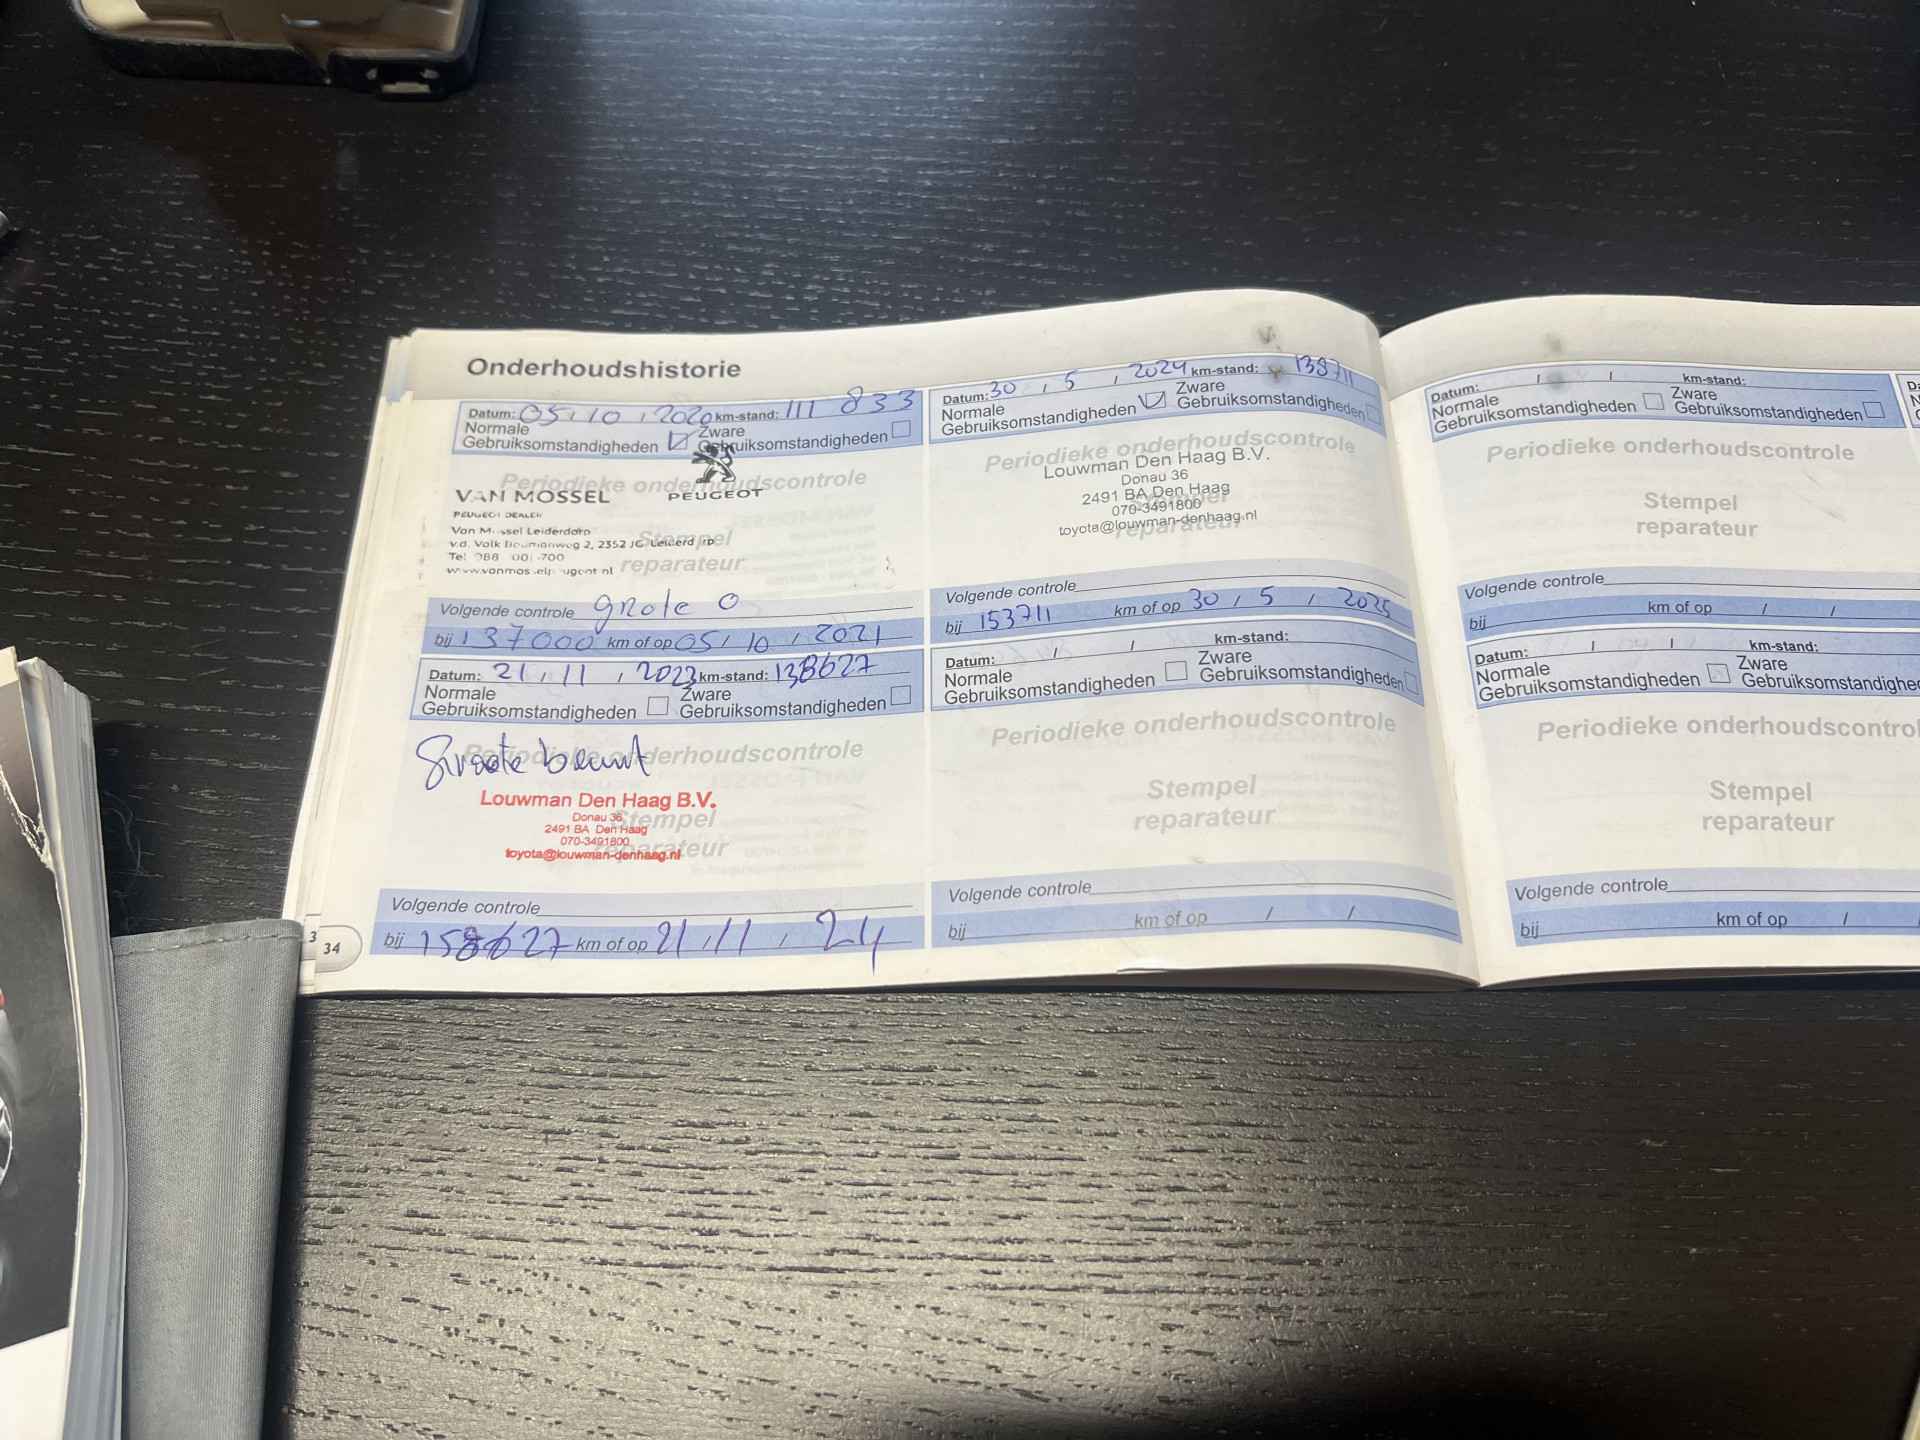 Onderhoudshistorie
Datum: 05 / 10 / 2020 km-stand: 111 833
Normale Gebruiksomstandigheden
Zware Gebruiksomstandigheden
Periodieke onderhoudscontrole
PEUGEOT
VAN MOSSEL
PEUGEOT DEALER
Van Mossel Leiderdorp
2, 2352 JG Leiderdorp
Stempel
reparateur
Volgende controle grote o
bij 137000 km of op 05 / 10 / 2021
Datum: 21 / 11 / 2023 km-stand: 138627
Normale Gebruiksomstandigheden
Zware Gebruiksomstandigheden
Periodieke onderhoudscontrole
Groote beurt
Louwman Den Haag B.V.
Donau 36
2491 BA Den Haag
070-3491800
toyota@louwman-denhaag.nl
Stempel
reparateur
Volgende controle
bij 158627 km of op 21 / 11 / 24
34
Datum: 30 / 5 / 2024 km-stand: 138711
Normale Gebruiksomstandigheden
Zware Gebruiksomstandigheden
Periodieke onderhoudscontrole
Louwman Den Haag B.V.
Donau 36
2491 BA Den Haag
070-3491800
toyota@louwman-denhaag.nl
Stempel
reparateur
Volgende controle
bij 153711 km of op 30 / 5 / 2025
Datum: / / km-stand:
Normale Gebruiksomstandigheden
Zware Gebruiksomstandigheden
Periodieke onderhoudscontrole
Stempel
reparateur
Volgende controle
bij km of op / /
Datum: / / km-stand:
Normale Gebruiksomstandigheden
Zware Gebruiksomstandigheden
Periodieke onderhoudscontrole
Stempel
reparateur
Volgende controle
bij km of op / /
Datum: / / km-stand:
Normale Gebruiksomstandigheden
Zware Gebruiksomstandighede
Periodieke onderhoudscontrol
Stempel
reparateur
Volgende controle
bij km of op /